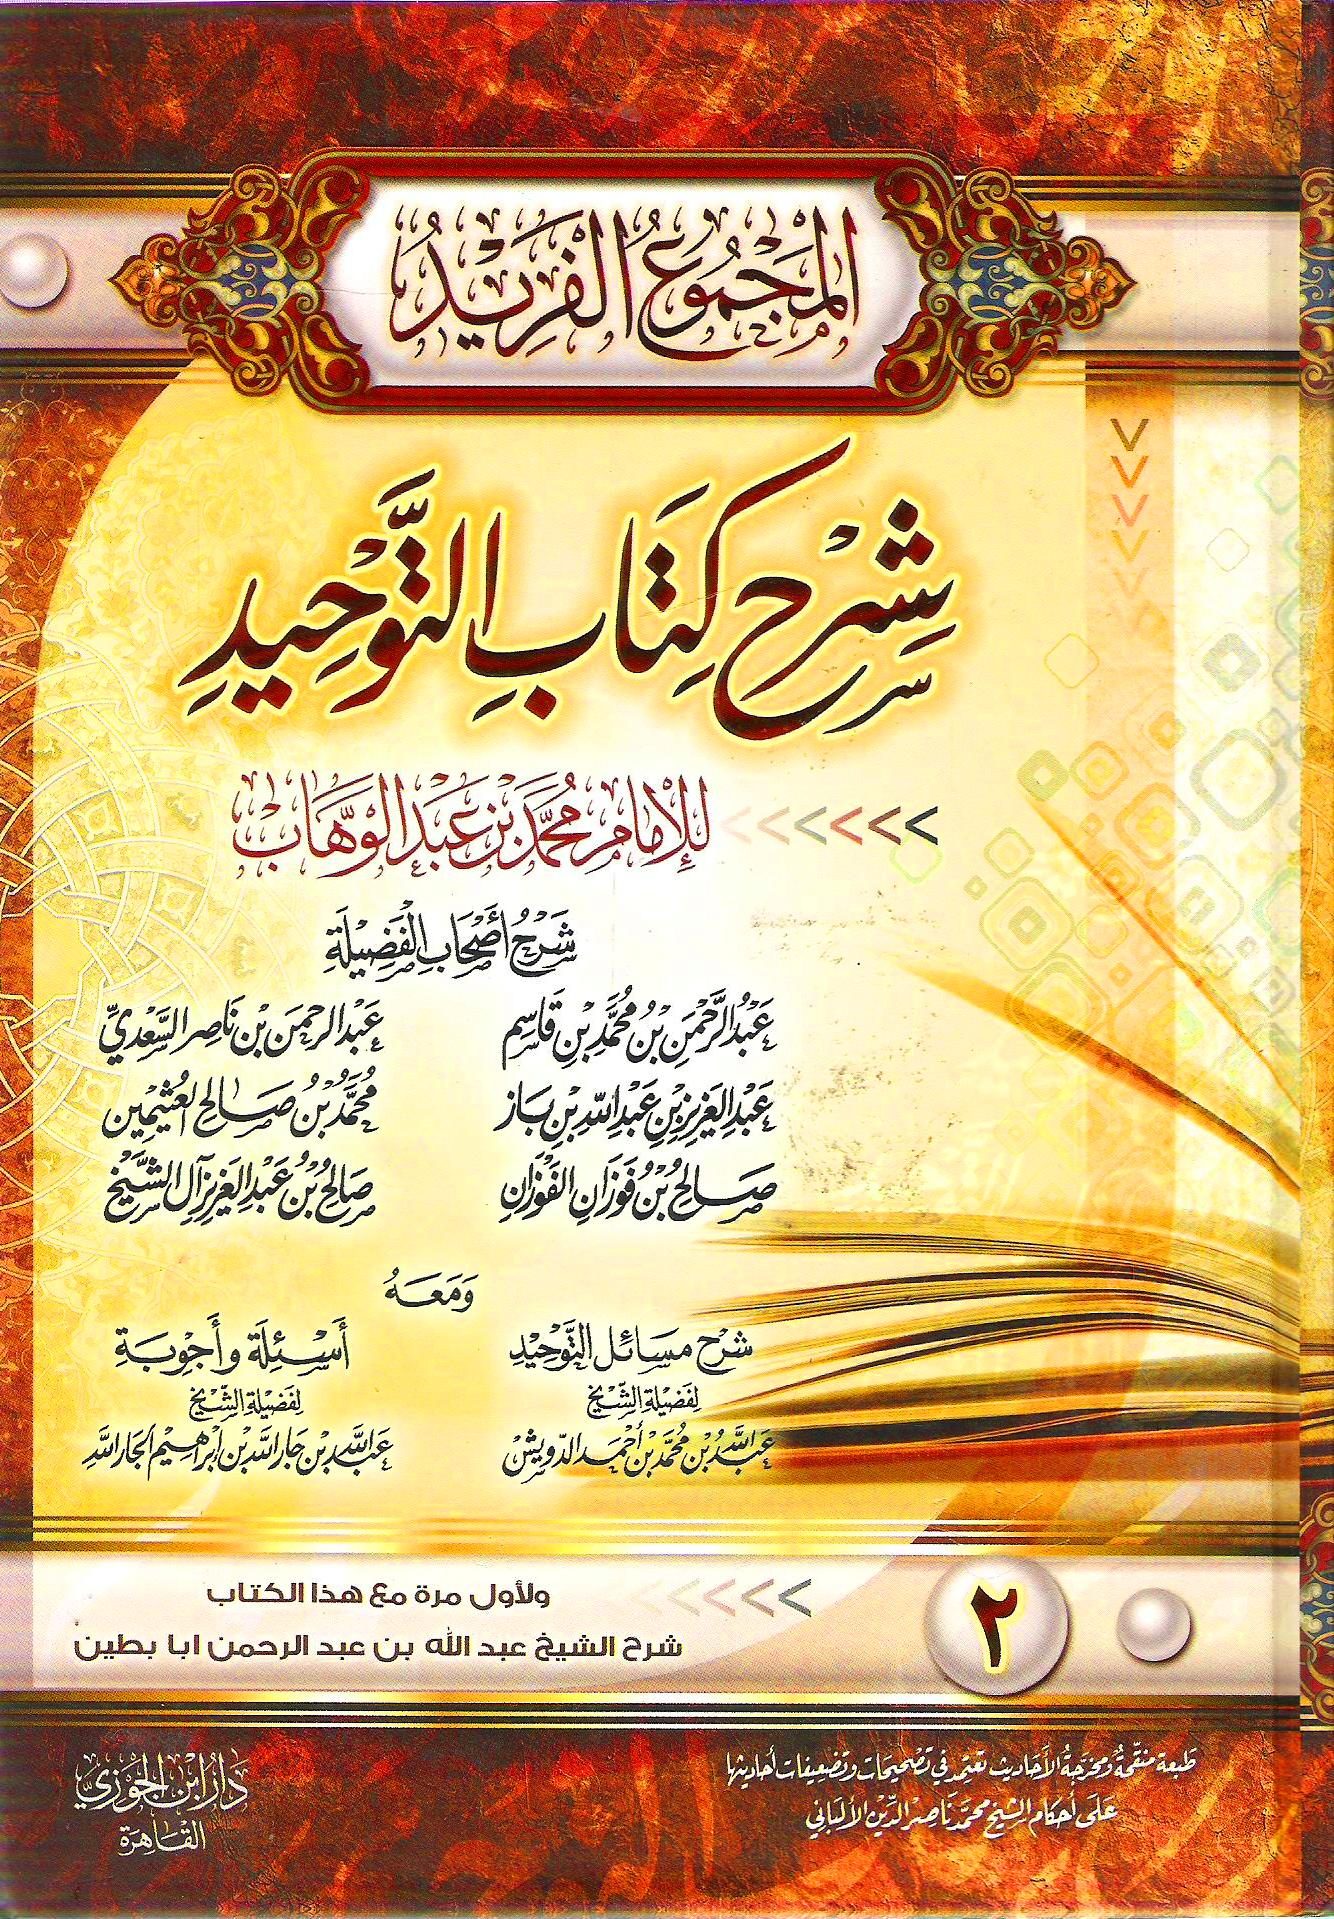 المَجْمُوعُ الفَرِيدُ
شَرْحُ كِتَابِ التَّوْحِيدِ
لِلإِمَامِ مُحَمَّدِ بْنِ عَبْدِ الوَهَّابِ
شَرْحُ أَصْحَابِ الفَضِيلَةِ
عَبْدُ الرَّحْمَنِ بْنُ مُحَمَّدِ بْنِ قَاسِم
عَبْدُ الرحمَنِ بْن نَاصِر السَّعْديِّ
عَبْدُ العَزِيزِ بْنِ عَبْدِ اللهِ بْنِ بَاز
مُحَمَّدُ بْنُ صَالح العُثَيْمِين
صَالِحُ بْنُ فَوْزَانِ الفَوْزَانِ
صَالِحُ بْنُ عَبْدِ العَزِيزِ آلِ الشَّيْخ
وَمَعَهُ
شَرْحُ مَسَائِلِ التَّوْحِيدِ
لِفَضِيلَةِ الشَّيْخ
عَبْدُ اللهِ بْنُ مُحَمَّدِ بْنِ أَحْمَدَ الدّوِيشْ
أَسْئِلَة وأَجْوِبَة
لِفَضِيلَةِ الشَّيْخ
عَبْدِ اللهِ بْنِ جَارِ اللهِ بْنِ إِبْرَاهِيمَ الجَارِ اللهِ
٢
ولأول مرة مع هذا الكتاب
شرح الشيخ عبد الله بن عبد الرحمن ابا بطين
طبعة منقّحةٌ ومخرّجةُ الأحَاديث تعتمد في تصحيحَات وتضعيفات أحاديثها
عَلَى أحكام الشيخ محمّد نَاصر الدّين الألبَاني
دَارُ ابْنِ الجَوْزِيّ
القَاهِرَة